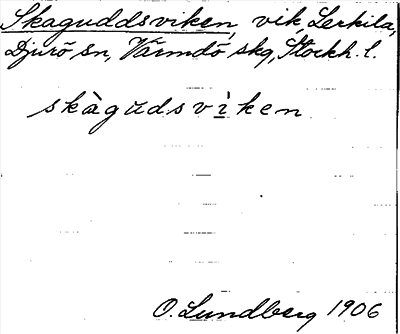 Skaguddsviken, vik, Lerkila,
Djurö sn, Värmdö skg, Stockh. l.
skàgŭdsvìken
O. Lundberg 1906